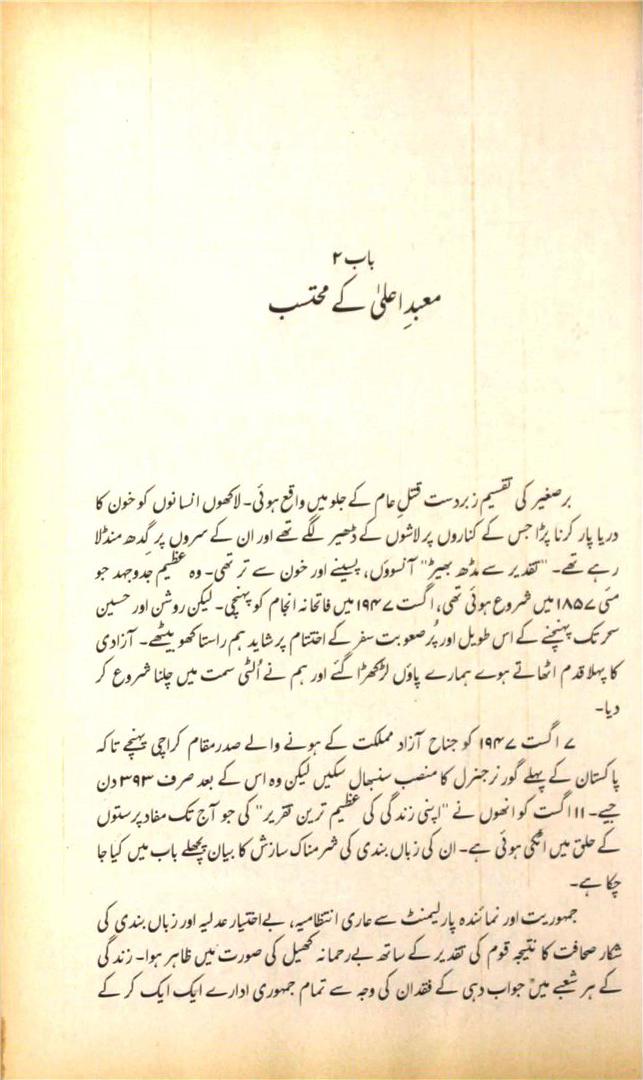 باب ۲
معبدِ اعلیٰ کے محتسب
برصغیر کی تقسیم زبردست قتلِ عام کے جلو میں واقع ہوئی۔ لاکھوں انسانوں کو خون کا
دریا پار کرنا پڑا جس کے کناروں پر لاشوں کے ڈھیر لگے تھے اور ان کے سروں پر گِدھ منڈلا
رہے تھے۔ "تقدیر سے مڈھ بھیڑ" آنسوؤں، پسینے اور خون سے تر تھی۔ وہ عظیم جدوجہد جو
مئی ۱۸۵۷ میں شروع ہوئی تھی، اگست ۱۹۴۷ میں فاتحانہ انجام کو پہنچی۔ لیکن روشن اور حسین
سحر تک پہنچنے کے اس طویل اور پُرصعوبت سفر کے اختتام پر شاید ہم راستا کھو بیٹھے۔ آزادی
کا پہلا قدم اٹھاتے ہوے ہمارے پاؤں لڑکھڑا گئے اور ہم نے اُلٹی سمت میں چلنا شروع کر
دیا۔
۷ اگست ۱۹۴۷ کو جناح آزاد مملکت کے ہونے والے صدر مقام کراچی پہنچے تاکہ
پاکستان کے پہلے گورنر جنرل کا منصب سنبھال سکیں لیکن وہ اس کے بعد صرف ۳۹۳ دن
جیے۔ ۱۱ اگست کو انھوں نے "اپنی زندگی کی عظیم ترین تقریر" کی جو آج تک مفاد پرستوں
کے حلق میں اٹکی ہوئی ہے۔ ان کی زباں بندی کی شرمناک سازش کا بیان پچھلے باب میں کیا جا
چکا ہے۔
جمہوریت اور نمائندہ پارلیمنٹ سے عاری انتظامیہ، بے اختیار عدلیہ اور زباں بندی کی
شکار صحافت کا نتیجہ قوم کی تقدیر کے ساتھ بے رحمانہ کھیل کی صورت میں ظاہر ہوا۔ زندگی
کے ہر شعبے میں جواب دہی کے فقدان کی وجہ سے تمام جمہوری ادارے ایک ایک کر کے